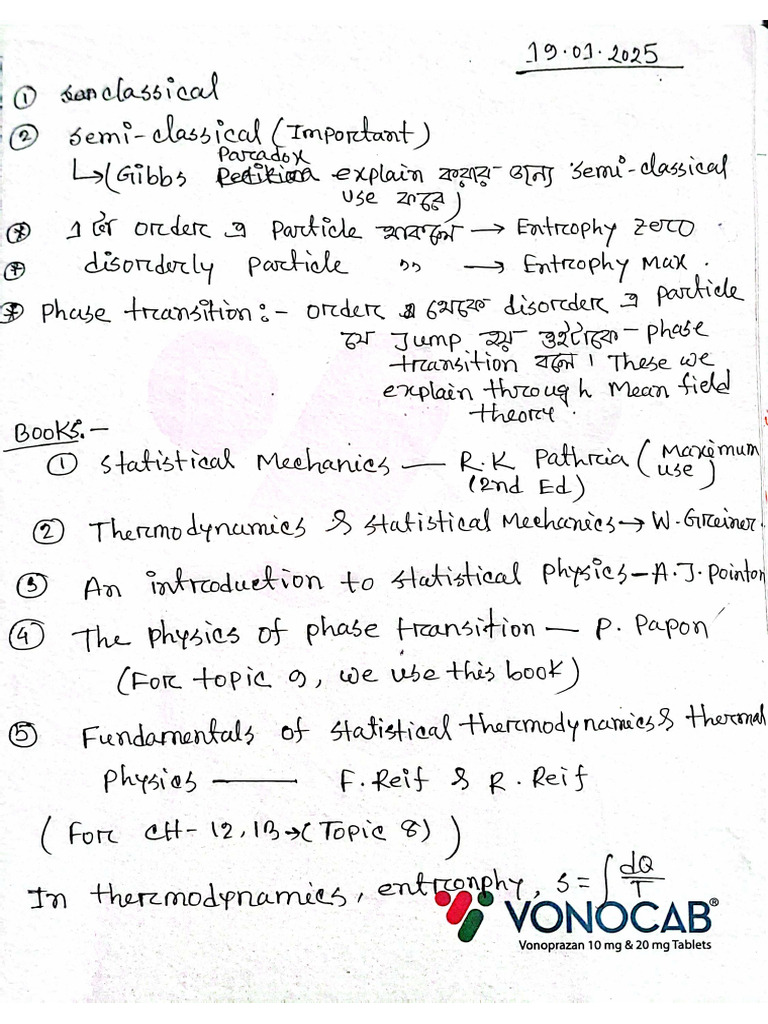 19.01.2025
① classical
② semi-classical (Important)
Paradox
↳ (Gibbs explain করার জন্যে semi-classical
use করে)
* 1 টা order এ Particle থাকলে → Entrophy zero.
* disorderly particle ,, → Entrophy Max.
* Phase transition:- order থেকে disorder এ particle
যে Jump হয় ওইটাকে phase
transition বলে। These we
explain through Mean field
theory.
Books:-
① Statistical Mechanics — R.K Pathria (Maximum
use)
(2nd Ed)
② Thermodynamics & statistical Mechanics → W. Greiner.
③ An introduction to statistical physics – A.J. Pointon
④ The physics of phase transition — P. Papon
(For topic 9, we use this book)
⑤ Fundamentals of statistical thermodynamics & thermal
Physics — F. Reif & R. Reif
(For CH-12, 13 → (Topic 8))
In thermodynamics, entronphy, S = ∫ dQ/T
VONOCAB®
Vonoprazan 10 mg & 20 mg Tablets